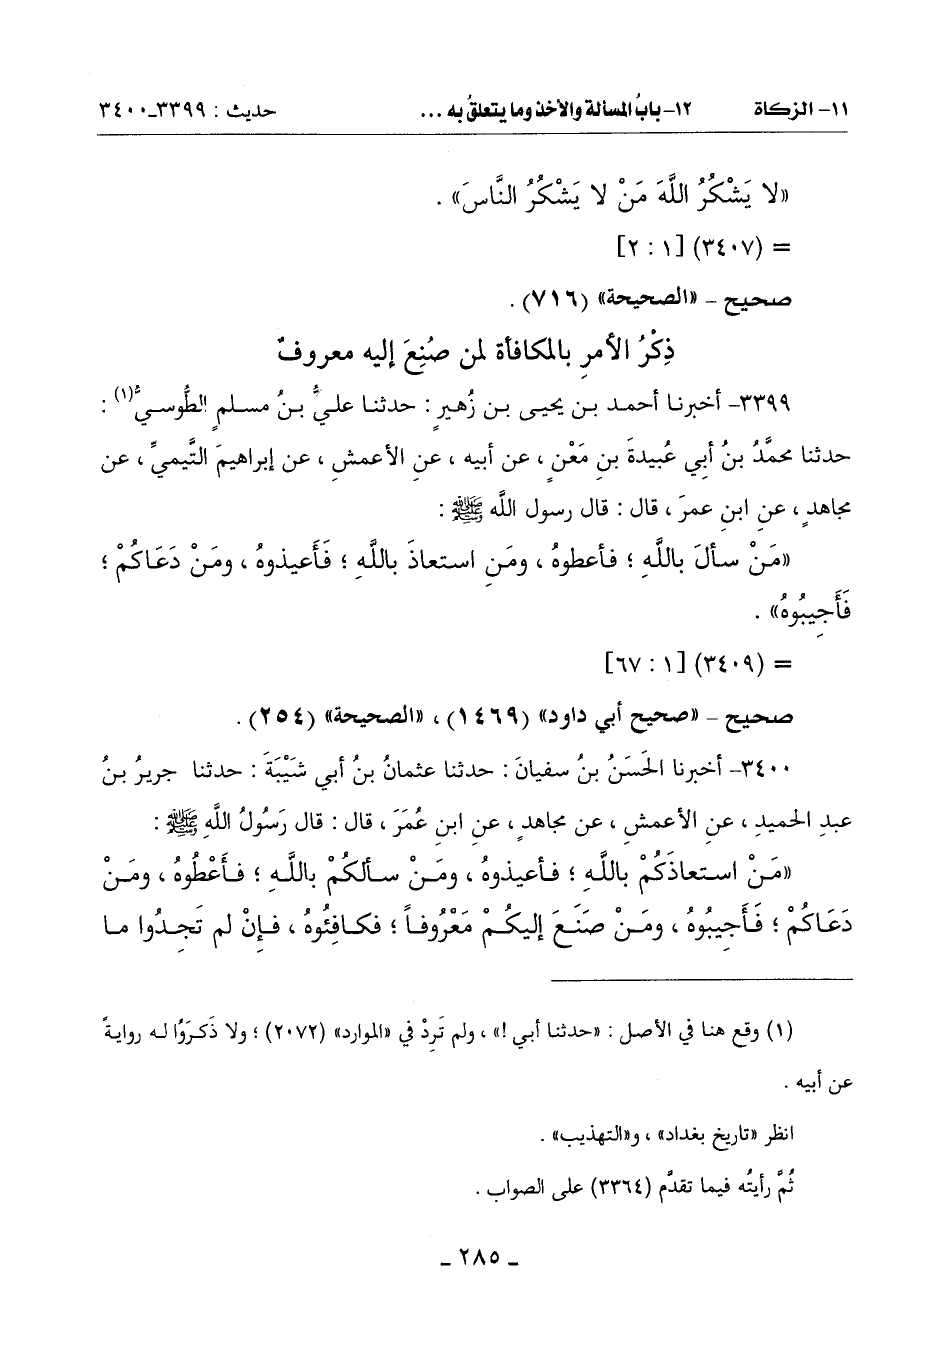 ١١- الزكاة ١٢- بابُ المسألة والأخذ وما يتعلقُ به ... حديث : ٣٣٩٩-٣٤٠٠
«لا يَشْكُرُ اللَّهَ مَنْ لا يَشْكُرُ النَّاسَ» .
= (٣٤٠٧) [١ : ٢]
صحيح - «الصحيحة» (٧١٦) .
ذِكْرُ الأمرِ بالمكافأة لمن صُنِعَ إليه معروفٌ
٣٣٩٩- أخبرنا أحمد بن يحيى بن زُهيرٍ : حدثنا عليُّ بنُ مسلمٍ الطُّوسيُّ(١) :
حدثنا محمَّدُ بنُ أبي عُبيدةَ بنِ مَعْنٍ ، عن أبيه ، عنِ الأعمشِ ، عن إبراهيمَ التَّيميِّ ، عن
مجاهدٍ ، عنِ ابنِ عمرَ ، قال : قال رسول اللَّه ﷺ :
«مَنْ سألَ باللَّهِ ؛ فأعطوهُ ، ومَنِ استعاذَ باللَّهِ ؛ فَأَعيذوهُ ، ومَنْ دَعَاكُمْ ؛
فَأَجِيبُوهُ» .
= (٣٤٠٩) [١ : ٦٧]
صحيح - «صحيح أبي داود» (١٤٦٩) ، «الصحيحة» (٢٥٤) .
٣٤٠٠- أخبرنا الحَسَنُ بنُ سفيانَ : حدثنا عثمانُ بنُ أبي شَيْبَةَ : حدثنا جريرُ بنُ
عبدِ الحميدِ ، عنِ الأعمشِ ، عن مجاهدٍ ، عنِ ابنِ عُمَرَ ، قال : قال رَسُولُ اللَّهِ ﷺ :
«مَنْ استعاذَكُمْ باللَّهِ ؛ فأعيذوهُ ، ومَنْ سألكُمْ باللَّهِ ؛ فأَعْطُوهُ ، ومَنْ
دَعَاكُمْ ؛ فَأَجِيبُوهُ ، ومَنْ صَنَعَ إليكُمْ مَعْرُوفاً ؛ فكافِئُوهُ ، فإنْ لم تَجِدُوا ما
(١) وقع هنا في الأصل : «حدثنا أبي !» ، ولم تَرِدْ في «الموارد» (٢٠٧٢) ؛ ولا ذَكَرَوُا له روايةً
عن أبيه .
انظر «تاريخ بغداد» ، و«التهذيب» .
ثُمَّ رأيتُه فيما تقدَّم (٣٣٦٤) على الصواب .
- ٢٨٥ -